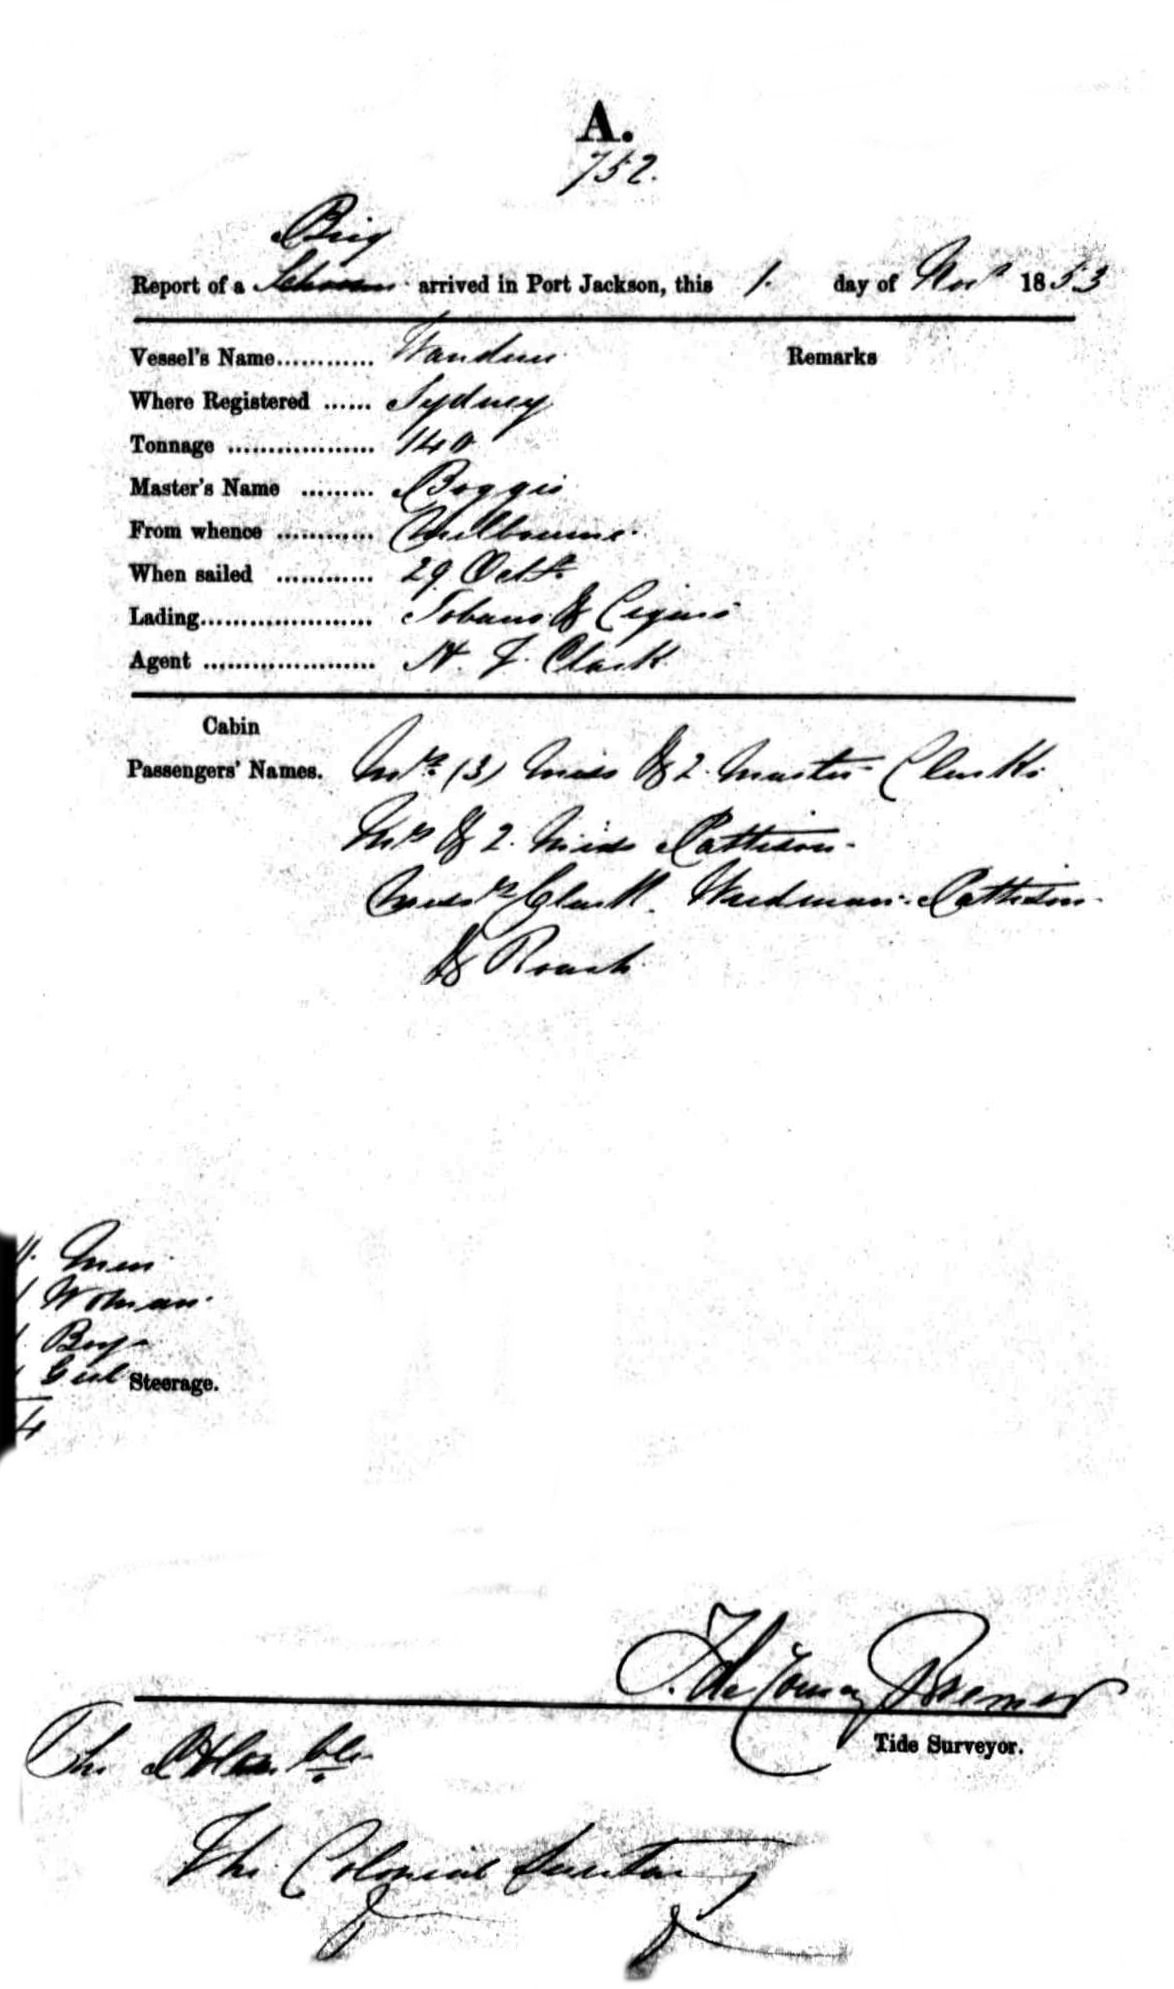 A.
752.
Brig
Report of a Schooner arrived in Port Jackson, this 1. day of Novr 1853
Vessel's Name............ Remarks
Where Registered ...... Sydney
Tonnage .................. 140
Master's Name ......... Boggis
From whence ............ Melbourne
When sailed ............ 29 Octr
Lading..................... Tobacco & Cigars
Agent ..................... Clark
Cabin
Passengers' Names. Mrs (3) Miss & 2. Master Clark
Mrs & 2. Miss Pattison
Messrs Clark. Pattison
& Roach
Men
1 Woman
Boy
Girl
Steerage.
Bremer
Tide Surveyor.
The Honble
The Colonial Secretary